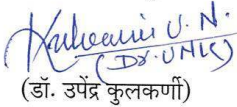 Kulkarni U. N.
(Dr. UNK)
(डॉ. उपेंद्र कुलकर्णी)